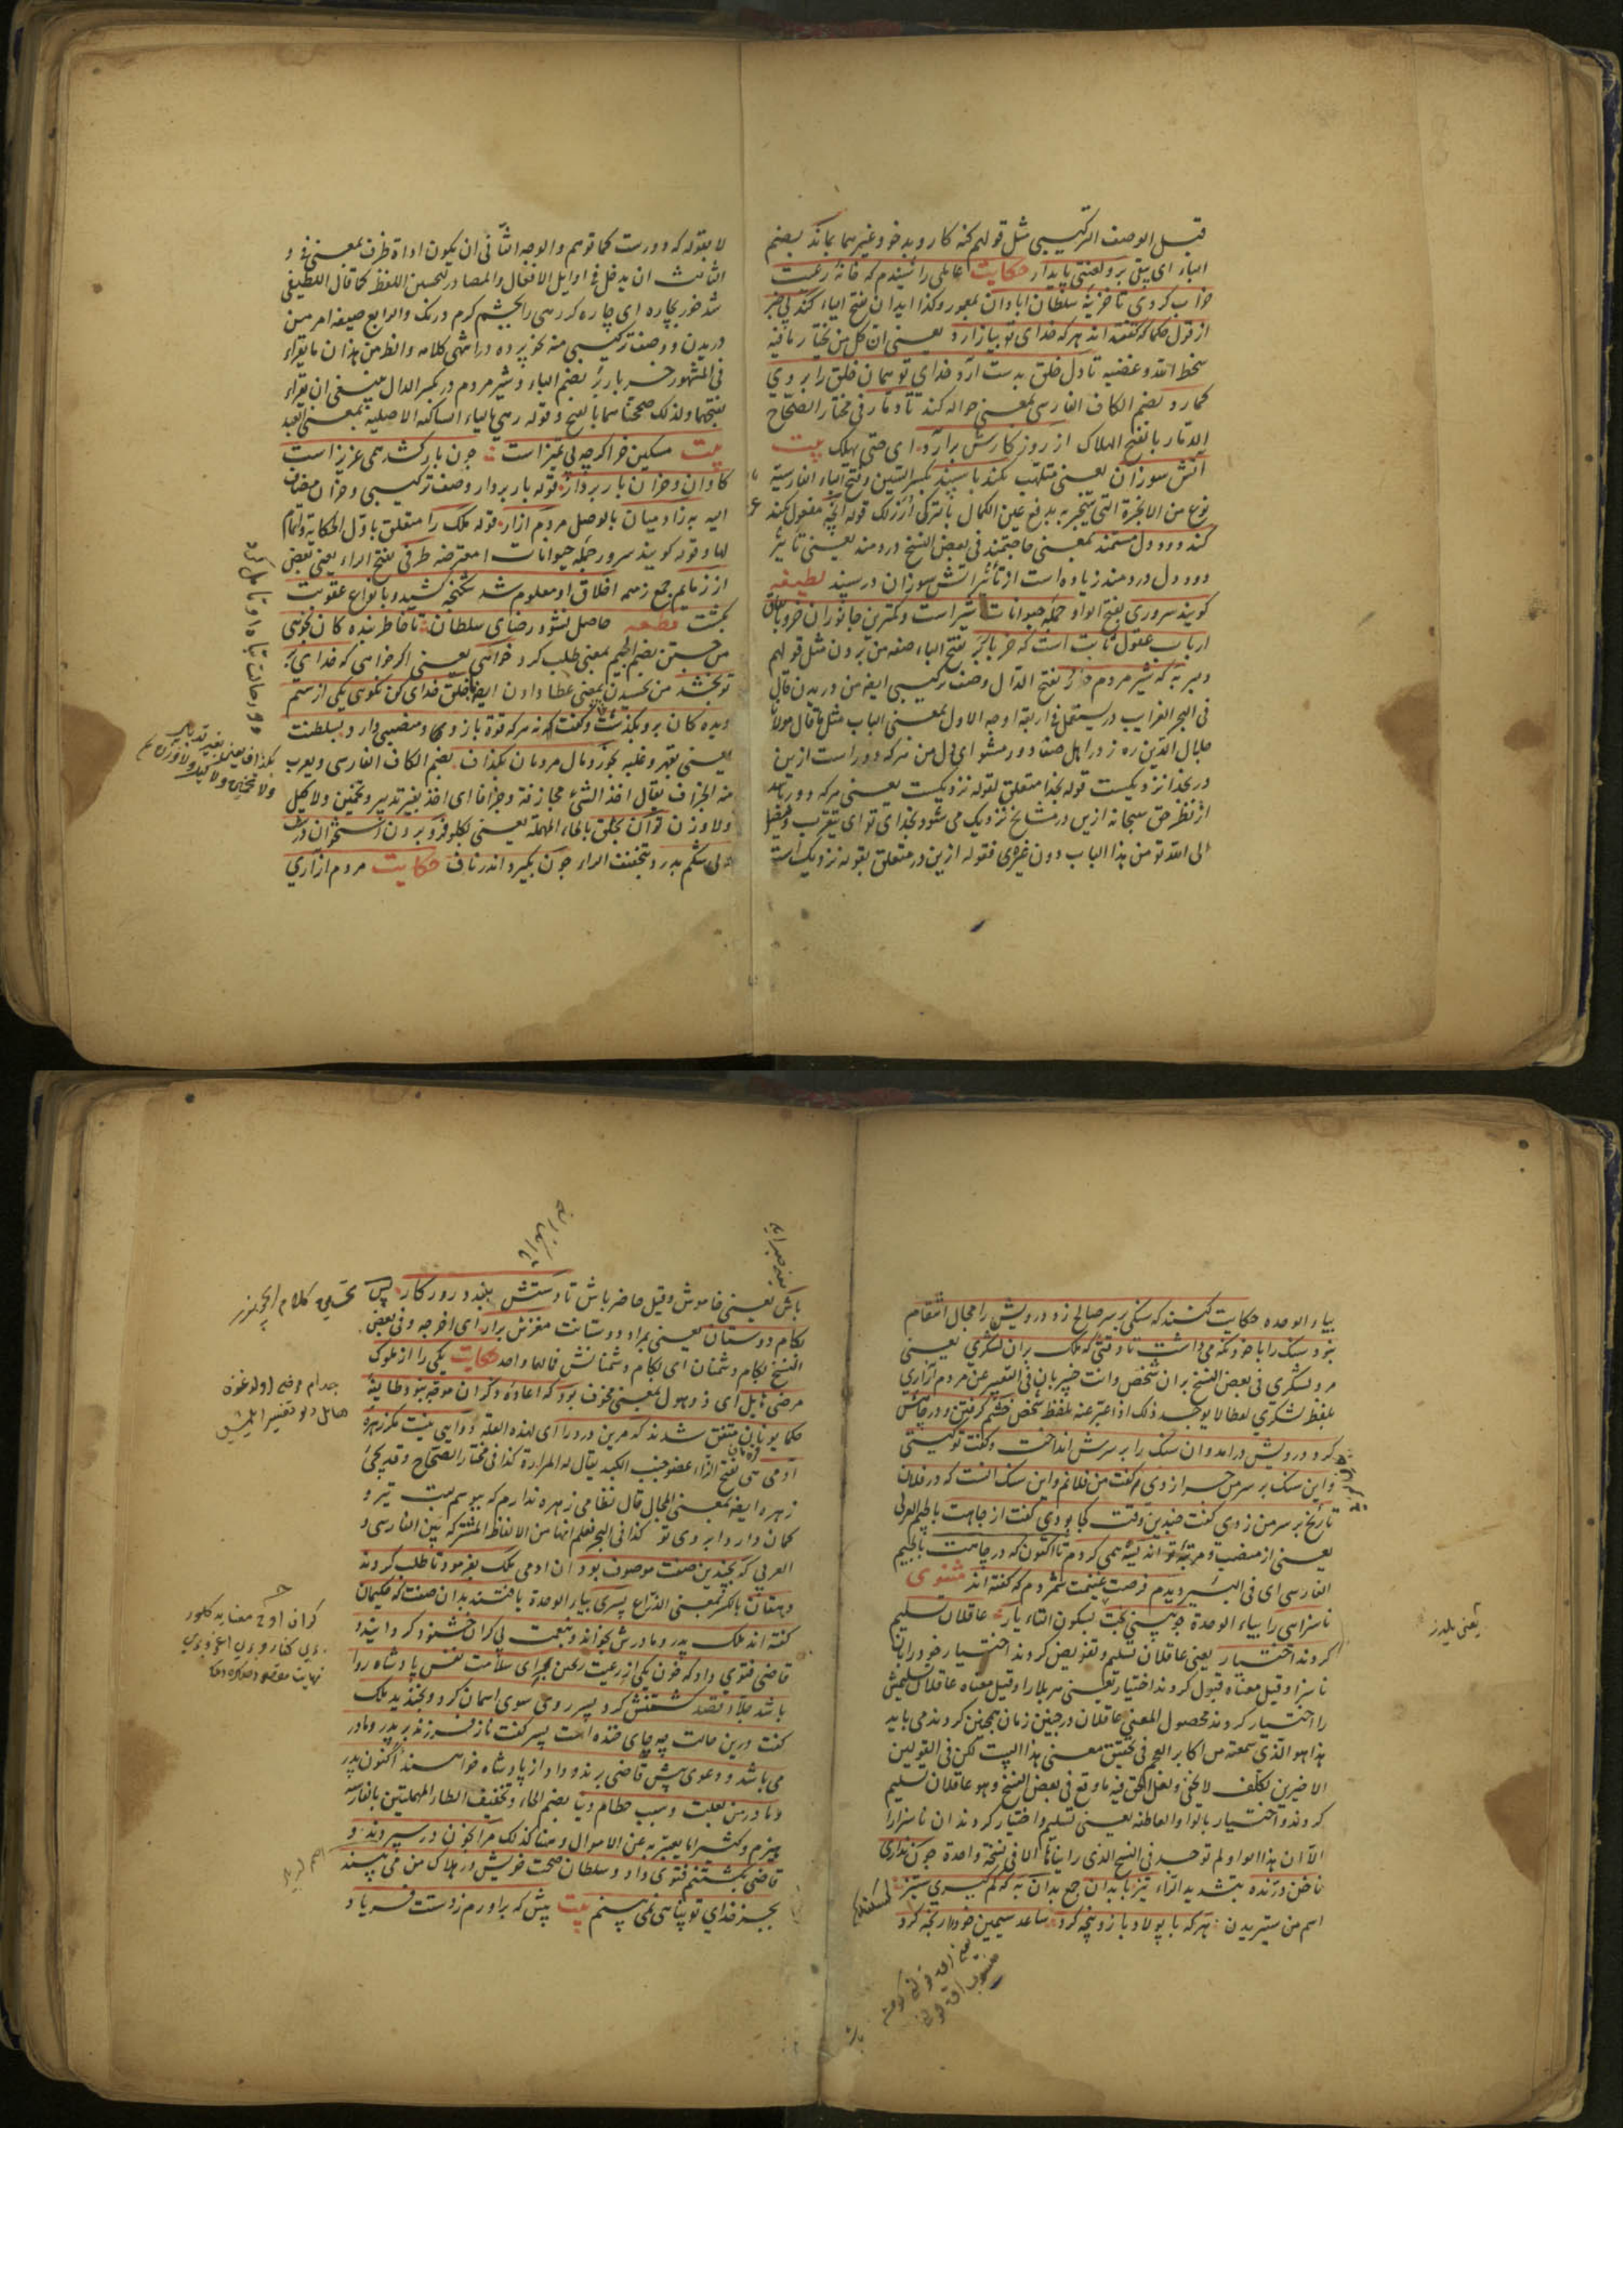 قبل الوصف التركيبى مثل قولهم كنه كار و بدخو و غيرهما بماند بضم
الباء اى يبقى بر و لعنتى پايدار حكايت عاملى را شنيدم كه خانهٔ رعيت
خراب كردى تا خزينهٔ سلطان ابادان بمعمور وكذا ايدان بفتح الياء كند بى خبر
از قول حكما كه گفته اند هر كه خداى تو بيازارد يعنى ان كل من يختار مافيه
سخط الله و غضبه تا دل خلق بدست آرد خداى تو همان خلق را بروى
كمارد بضم الكاف الفارسى بمعنى حواله كند تا دمار فى مختار الصحاح
الدمار بالفتح الهلاك از روزكارش برآرد اى حتى يهلك بيت
آتش سوزان يعنى ملتهب نكند با سپند بكسر السين وفتح الباء الفارسية
نوع من الابخرة التى يتبخر به يدفع عين الكمال بالتركى ارزلك قوله آنچه مفعول نكند
كند دود دل مستمند بمعنى حاجتمند فى بعض النسخ دردمند يعنى تاثير
دود دل دردمند زياده است از تأثير اتش سوزان در سپند لطيفه
كويند سرورى بفتح الواو جمله حيوانات شير است و كمترين جانوران خر و باتفاق
ارباب عقول ثابت است كه خر باربر بفتح الباء صفه من بردن مثل قولهم
دمبر به كه شير مردم در بفتح الدال وصف تركيبى ايضا من دريدن قال
فى البحر الغرايب در يستعمل فى اربعة اوجه الاول بمعنى الباب مثل ما قال مولانا
جلال الدين ره ز در اهل صفا دور مشو اى دل من هر كه دور است ازين
در بخدا نزديكست قوله بخدا متعلق لقوله نزديكست يعنى هر كه دور باشد
از نظر حق سبحانه ازين در مشايخ نزديك مى شود بخداى تو اى يتقرب و يصل
الى الله تو من هذا الباب دون غيره فقوله ازين در متعلق بقوله نزديك است
لا بقوله كه دورست كما توهم والوجه الثانى ان يكون اداة ظرف بمعنى فى و
الثالث ان يدخل فى اوايل الافعال والمصادر لتحسين اللفظ كما قال اللطيفى
در يدن ووصف تركيبى منه نحو پرده در انتهى كلامه وانظر من هذا ان ما يقراء
فى المشهور خر باربر بضم الباء وشير مردم در بكسر الدال ينبغى ان يقراء
بفتحهما ولذلك صححناهما بالفتح و قوله رهى بالياء الساكنه الاصلية بمعنى العبد
بيت مسكين خر اكرچه بى تميز است چون بار كشد همى عزيز است
كاوان و خران بار بردار قوله بار بردار وصف تركيبى و خران مضاف
اليه به ز ادميان بالوصل مردم آزار قوله ملك را متعلق باول الحكاية واتمام
لها و قوله كويند سرور جمله حيوانات امعترضه طرفى بفتح الراء يعنى بعض
از زمايم جمع زمه اخلاق او معلوم شد شكنجه كشيد و بانواع عقوبت
بكشت قطعه حاصل نشود رضاى سلطان تا خاطر بنده كان نجوئى
من جستن بضم الجيم بمعنى طلب كرد خواهى يعنى اكر خواهى كه خداى بر
تو بخشد من بخشيدن بمعنى عطا دادن ايضا با خلق خداى كن نكويى يكى از ستم
ديده كان برو بكذشت و كفت نه هر كه قوة بازوى و منصبى دارد بسلطنت
يعنى بقهر و غلبه بخورد مال مردمان بكذاف بضم الكاف الفارسى و يعرب
منه الجزاف يقال اخذ الشئ مجازفة و جزافا اى اخذ بغير تدبير و تخمين ولا كيل
ولا وزن توان بحلق بالحاء المهملة يعنى بكلو فرو بردن استخوان درشت
ولى شكم بدرد بتخفيف الراء چون بكيرد اندر ناف حكايت مردم ازارى
بكذاف يعنى بغير تدبير
ولا تخمين ولا كيل ولا وزن
بياء الوحده حكايت كنند كه سنكى بر سر صالح زد درويش را مجال انتقام
نبود سنك را با خود نكه مى داشت تا وقتى كه ملك بران لشكرى يعنى
مرد لشكرى فى بعض النسخ بران شخص وانت خبير بان فى التعبير عن مردم آزارى
بلفظ لشكرى لطفا لا يوجد ذلك اذا عبر عنه بلفظ شخص خشم كرفت و در چاهش
كرد درويش درامد و ان سنك را بر سرش انداخت و كفت تو كيستى
و اين سنك بر سر من چرا زدى كفت من فلانم و اين سنك انست كه در فلان
تاريخ بر سر من زدى كفت چندين وقت كجا بودى كفت از جاهت بالجيم العربى
يعنى از منصب و مرتبهٔ تو انديشه همى كردم تا اكنون كه در چاهت بالجيم
الفارسى اى فى البئر ديدم فرصت غنيمت شمردم كه كفته اند مثنوى
ناسزايى را بياء الوحدة چو بينى بخت بسكون التاء يار عاقلان تسليم
كردند اختيار يعنى عاقلان تسليم و تفويض كردند اختيار خود را بان
ناسزا و قيل معناه قبول كردند اختيار يعنى هر بلا را و قيل معناه عاقلان تسليمش
را اختيار كردند محصول المعنى عاقلان در چنين زمان همچنين كردند مى بايد
هذا هو الذى سمعته من اكابر العجم فى تحقيق معنى هذا البيت لكن فى القولين
الاخيرين تكلف لا يخفى و لعل الحق فيه ما وقع فى بعض النسخ و هو عاقلان تسليم
كردند و اختيار بالواو العاطفه يعنى تسليم و اختيار كردند ان ناسزا را
الا ان هذا الواو لم توجد فى النسخ الذى رايناها الا فى نسخة واحدة چون ندارى
ناخن درنده بتشديد الراء تيز با بدان جمع بدان به كه كم كيرى ستيز
اسم من ستيزيدن هر كه با پولاد بازو پنجه كرد ساعد سيمين خود را رنجه كرد
يعنى يلدز
باش يعنى خاموش و قيل حاضر باش تا دستش ببندد روزكار پس
بكام دوستان يعنى بمراد دوستانت مغزش برار اى اخرجه و فى بعض
النسخ بكام دشمنان اى بكام دشمنانش فالمآل واحد حكايت يكى را از ملوك
مرضى هايل اى ذو هول بمعنى مخوف بود كه اعادهٔ ذكر ان موجه نبود طايفهٔ
حكما يونان متفق شدند كه مرين درد را اى لهذه العلة دوايى نيست مكر زهرهٔ
آدمى هى بفتح الزاء عضو جنب الكبد يقال له المرارة كذا فى مختار الصحاح و قد يجئ
زهره ايضا بمعنى المجال قال نظامى زهره ندارم كه ببوسم لبت تير و
كمان دارد ابروى تو كذا فى البحر فعلم انها من الالفاظ المشتركة بين الفارسى و
العربى كه بچندين صفت موصوف بود ان ادمى ملك بفرمود تا طلب كردند
دهقان بالكسر بمعنى الذراع پسرى بياء الوحدة يافتند بدان صفت كه حكيمان
كفته اند ملك پدر و مادرش بخواند و بنعمت بى كران خشنود كردانيد و
قاضى فتوى داد كه خون يكى از رعيت ريختن براى سلامت نفس پادشاه روا
باشد جلاد قصد كشتنش كرد پسر روى سوى اسمان كرد و بخنديد ملك
كفت درين حالت چه جاى خنده است پسر كفت ناز فرزند بر پدر و مادر
مى باشد و دعوى پيش قاضى برند و داد از پادشاه خواهند اكنون پدر
و مادر من بعلت و سبب حطام دنيا بضم الحاء و تخفيف الطاء المهملتين بالفارسيه
هيزم و كثيرا ما يعبر به عن الاموال و هنا كذلك مرا بخون در سپردند و
قاضى بكشتنم فتوى داد و سلطان صحت خويش در هلاك من مى بيند
بجز خداى تو پناهى نمى بينم بيت پيش كه براورم ز دستت فرياد